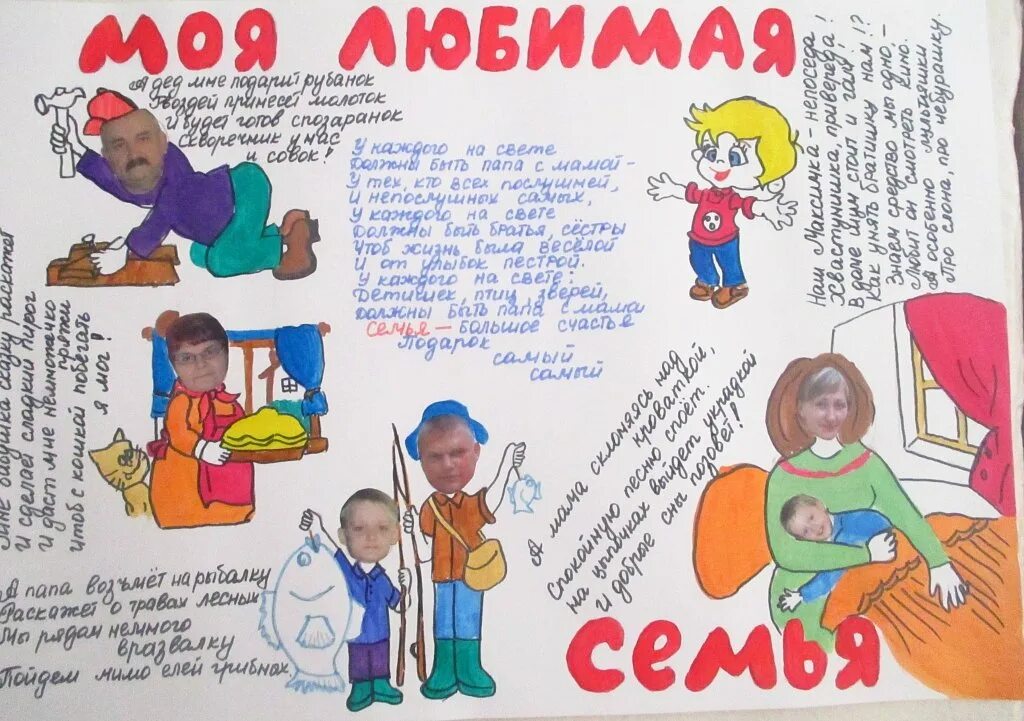 МОЯ ЛЮБИМАЯ
А дед мне подарит рубанок
Гвоздей принесёт молоток
И будет готов спозаранок
Скворечник у нас
и совок!
У каждого на свете
Должны быть папа с мамой –
У тех, кто всех послушней,
И непослушных самых,
У каждого на свете
Должны быть братья, сёстры
Чтоб жизнь была весёлой
И от улыбок пестрой.
У каждого на свете:
Детишек, птиц, зверей,
Должны быть папа с мамой
Семья – большое счастье
Подарок
самый
самый
Наш Максимка – непоседа!
Хвастунишка, привереда!
В доме шум стоит и гам!
Как унять братишку нам!?
Знаем средство мы одно –
Любит он смотреть кино.
А особенно мультяшки
Про слона, про чебурашку.
Мне бабушка сказку расскажет
И сделает сладкий пирог
И даст мне немножечко
пряжи
Чтоб с кошкой побегать
я мог!
А папа возьмёт на рыбалку
Расскажет о травах лесных
Мы рядом немного
вразвалку
Пойдем мимо елей грибных.
А мама склоняясь над
кроваткой,
Спокойную песню споёт.
На цыпочках выйдет украдкой
И добрые сны позовёт!
СЕМЬЯ